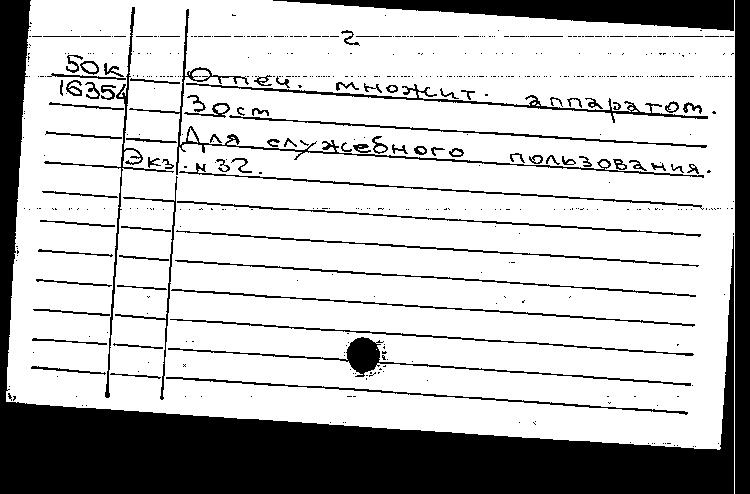 2
50к Отпеч. множит. аппаратом.
16354 30ст
Для служебного пользования.
Экз. N 32.